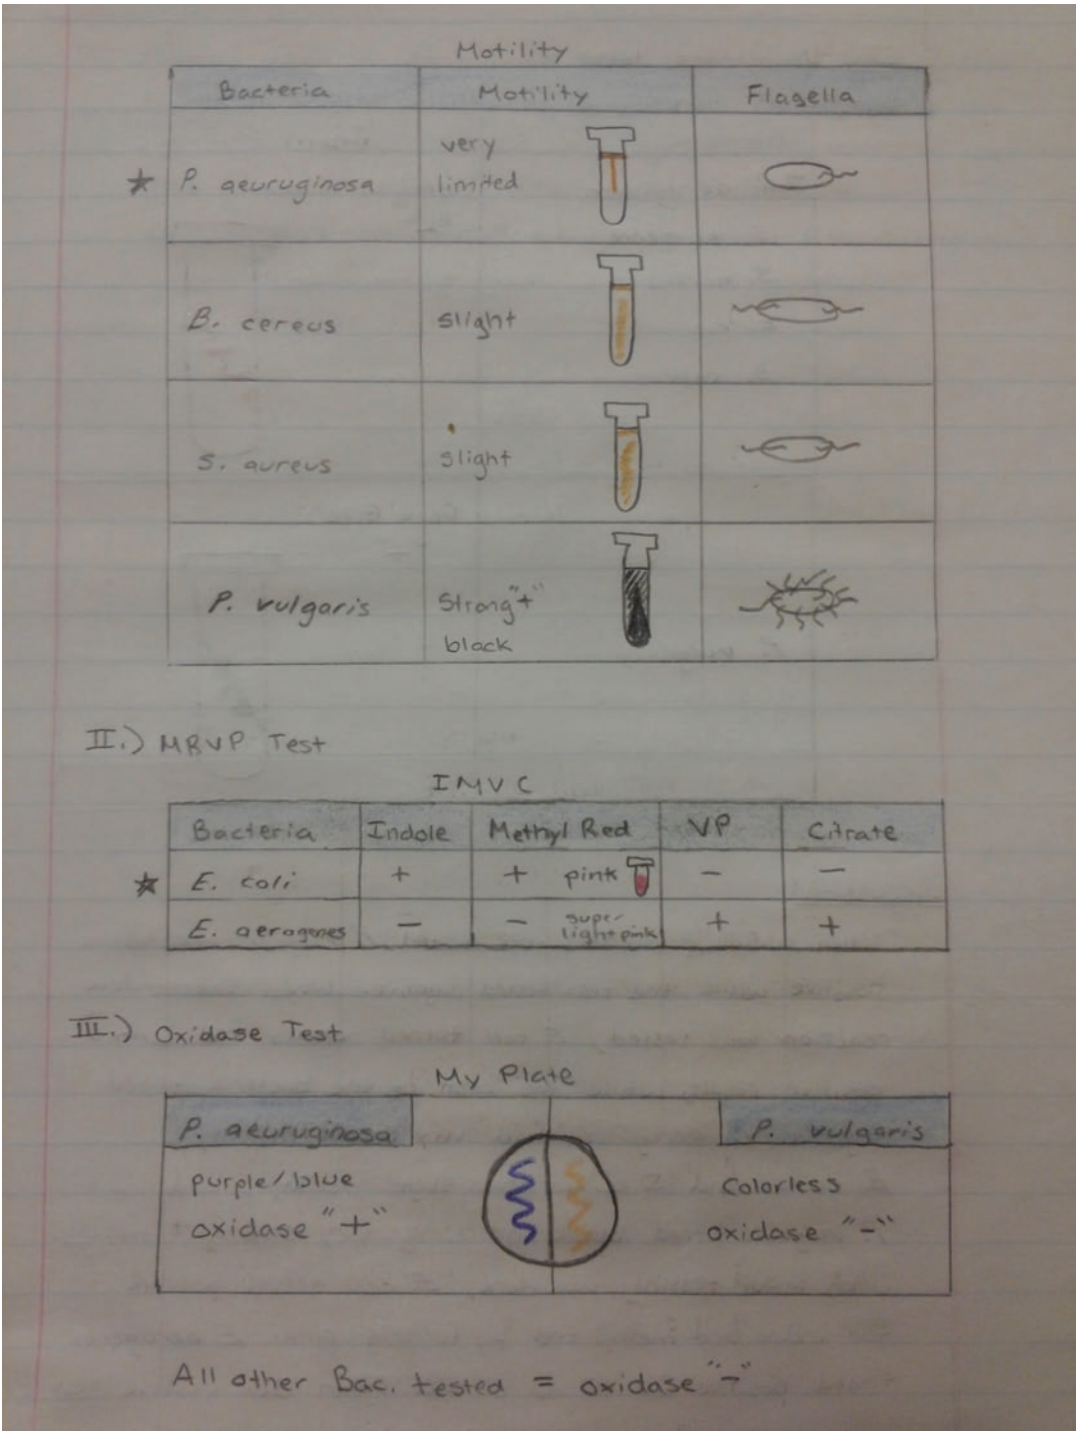 Motility
Bacteria Motility Flagella
★ P. aeuruginosa very limited
B. cereus slight
S. aureus slight
P. vulgaris Strong "+" black
II.) MRVP Test
IMVC
Bacteria Indole Methyl Red VP Citrate
★ E. coli + + pink − −
E. aerogenes − − super light pink + +
III.) Oxidase Test
My Plate
P. aeuruginosa P. vulgaris
purple/blue Colorless
oxidase "+" oxidase "-"
All other Bac. tested = oxidase "-"